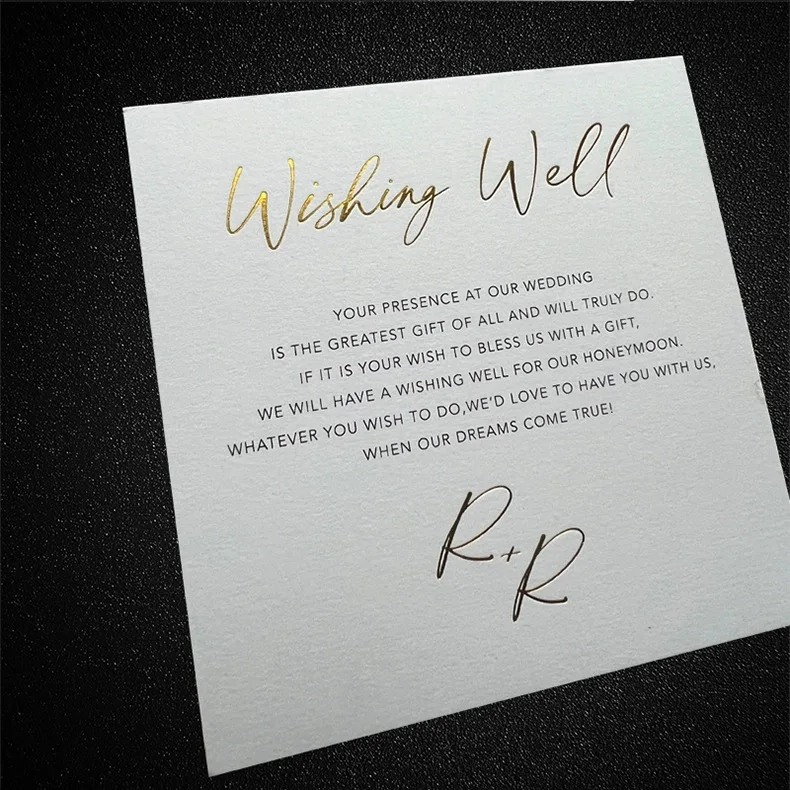 Wishing Well
YOUR PRESENCE AT OUR WEDDING
IS THE GREATEST GIFT OF ALL AND WILL TRULY DO.
IF IT IS YOUR WISH TO BLESS US WITH A GIFT,
WE WILL HAVE A WISHING WELL FOR OUR HONEYMOON.
WHATEVER YOU WISH TO DO,WE'D LOVE TO HAVE YOU WITH US,
WHEN OUR DREAMS COME TRUE!
R+R